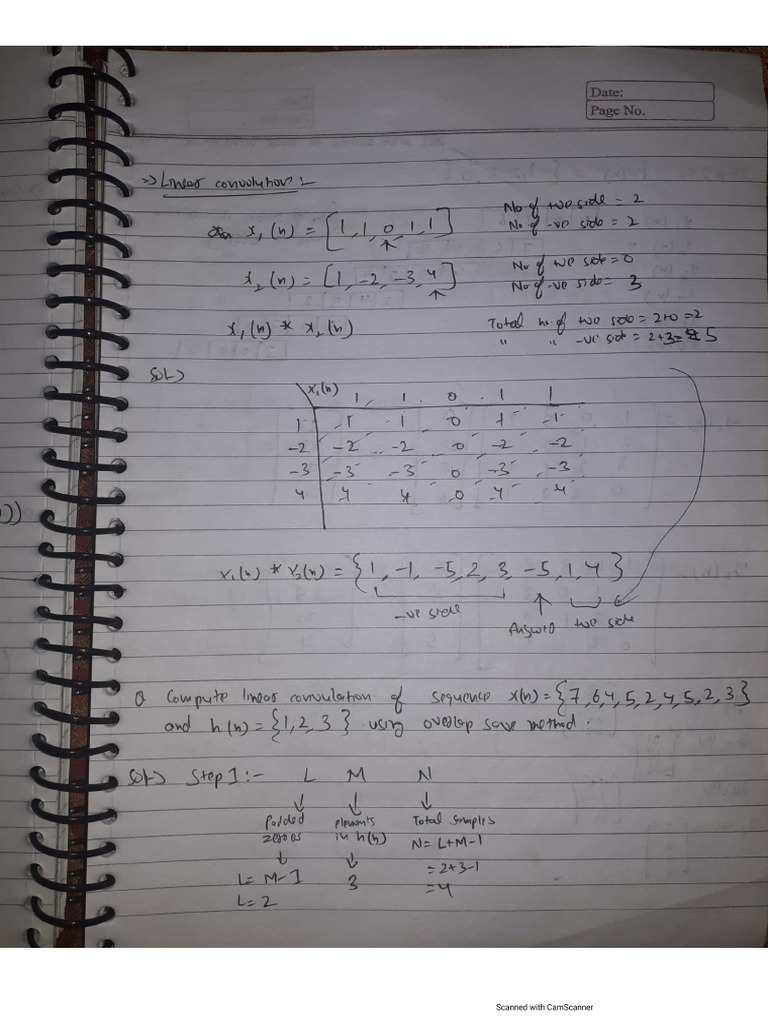 Date:
Page No.
=> Linear convolution :-
x₁(n) = [1, 1, 0, 1, 1]
↑
No of +ve side = 2
No of -ve side = 2
x₂(n) = [1, -2, -3, 4]
↑
No of +ve side = 0
No of -ve side = 3
x₁(n) * x₂(n)
Total no. of +ve side = 2+0 = 2
" " -ve side = 2+3 = 5
Sol→
x₁(n) 1, 1 . 0 . 1 1
1 1 1 0 1 1
-2 -2 -2 0 -2 -2
-3 -3 -3 0 -3 -3
4 4 4 0 4 4
x₁(n) * x₂(n) = {1, -1, -5, 2, 3, -5, 1, 4}
-ve side ↑ Answer +ve side
Q Compute linear convolution of sequence x(n) = {7,6,4,5,2,4,5,2,3}
and h(n) = {1,2,3} using overlap save method.
Sol→ Step 1 :- L M N
↓ ↓ ↓
Padded elements Total samples
zeroes in h(n) N = L+M-1
↓ ↓ = 2+3-1
L = M-1 3 = 4
L = 2
Scanned with CamScanner